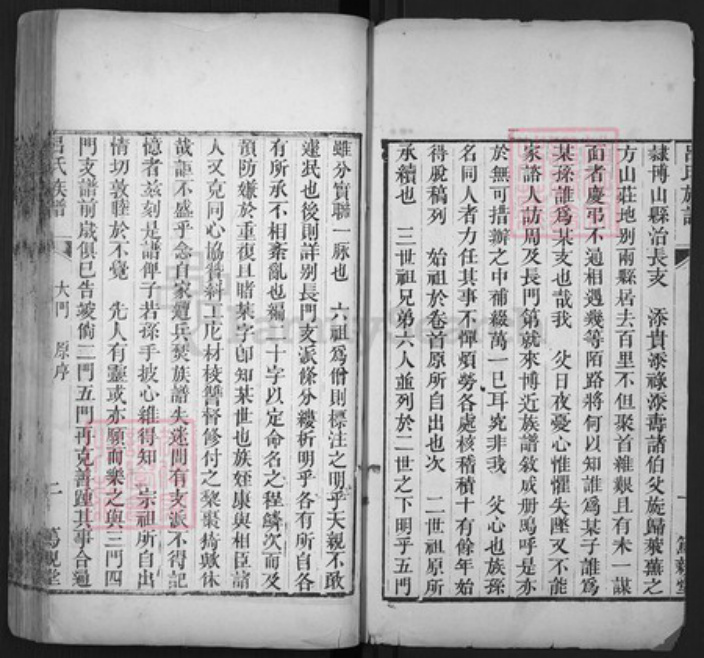 隸博山縣治長支　添貴添祿添壽諸伯父旋歸萊蕪之
方山莊地别兩縣居去百里不但聚首維艱且有未一謀
面者慶弔不通相遇幾等陌路將何以知誰爲某子誰爲
某孫誰爲某支也哉我　父日夜憂心惟懼失墜又不能
家諮人訪周及長門第就來博近族譜敘成册嗚呼是亦
於無可措辦之中補綴萬一已耳究非我　父心也族孫
名同人者力任其事不憚煩勞各處核稽積十有餘年始
得脫稿列　始祖於卷首原所自出也次　二世祖原所
承續也　三世祖兄弟六人並列於二世之下明乎五門
雖分實聯一脉也　六祖爲僧則標注之明乎天親不敢
遽泯也後則詳别長門支派條分縷析明乎各有所自各
有所承不相紊亂也編二十字以定命名之程鱗次而及
預防嫌於重復且睹某字卽知某世也族姪康與相臣諸
人又克同心協
工庀材校讐督修付之棃棗猗歟休
哉詎不盛乎念自家遭兵燹族譜失迷間有支派不得記
憶者茲刻是譜俾子若孫手披心維得知　宗祖所自出
情切敦睦於不覺　先人有靈或亦願而樂之與三門四
門支譜前歲俱已告竣倘二門五門再克善踵其事合通
呂氏族譜
大門　原序
二
篤親堂